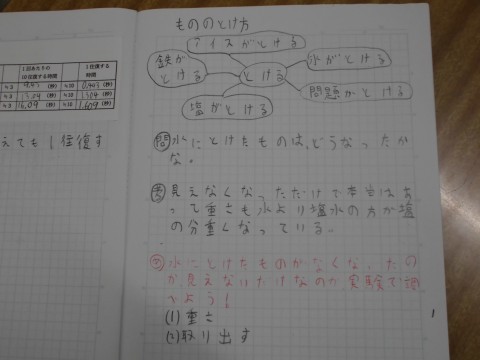 1回あたりの
10往復する時間
1往復する
時間
(秒)
(秒)
(秒)
1.304
(秒)
16.09
(秒)
1.609
(秒)
えても1往復す
もののとけ方
アイスがとける
鉄が
とける
とける
氷がとける
問題がとける
塩がとける
問 水にとけたものは、どうなったか
な。
考 見えなくなっただけで本当はあ
って重さも水より塩水の方が塩
の分重くなっている。
水にとけたものがなくなったの
か、見えないだけなのか実験で調
べよう!
(1)重さ
(2)取り出す